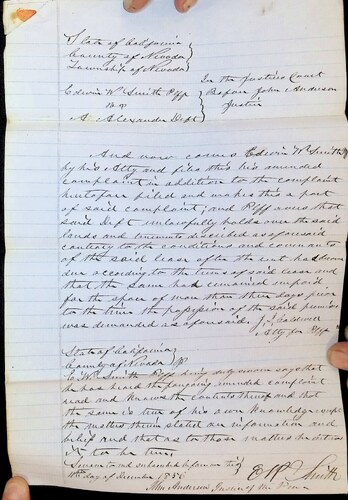 State of California
County of Nevada
Township of Nevada
In the Justices Court
Edwin W. Smith Plff
Before John Anderson
vs
Justice
A. Alexander Deft
And now comes Edwin W. Smith
by his Atty and files this his amended
complaint in addition to the complaint
heretofore filed and makes this a part
of said complaint, and Plff avers that
said Deft unlawfully holds over the said
lands and tenements described as aforesaid
contrary to the conditions and covenants
of the said lease after the rent had become
due according to the terms of said lease and
that the same had remained unpaid
for the space of more than three days prior
to the time the possession of the said premises
was demanded as aforesaid. Caldwell
Atty for Plff
State of California
County of Nevada
E. W. Smith Plff being duly sworn says that
he has heard the foregoing amended complaint
read and knows the contents thereof and that
the same is true of his own knowledge except
the matters therein stated on information and
belief and that as to those matters he believes
it to be true
Sworn to and subscribed before me this
day of December
E W Smith
John Anderson Justice of the Peace